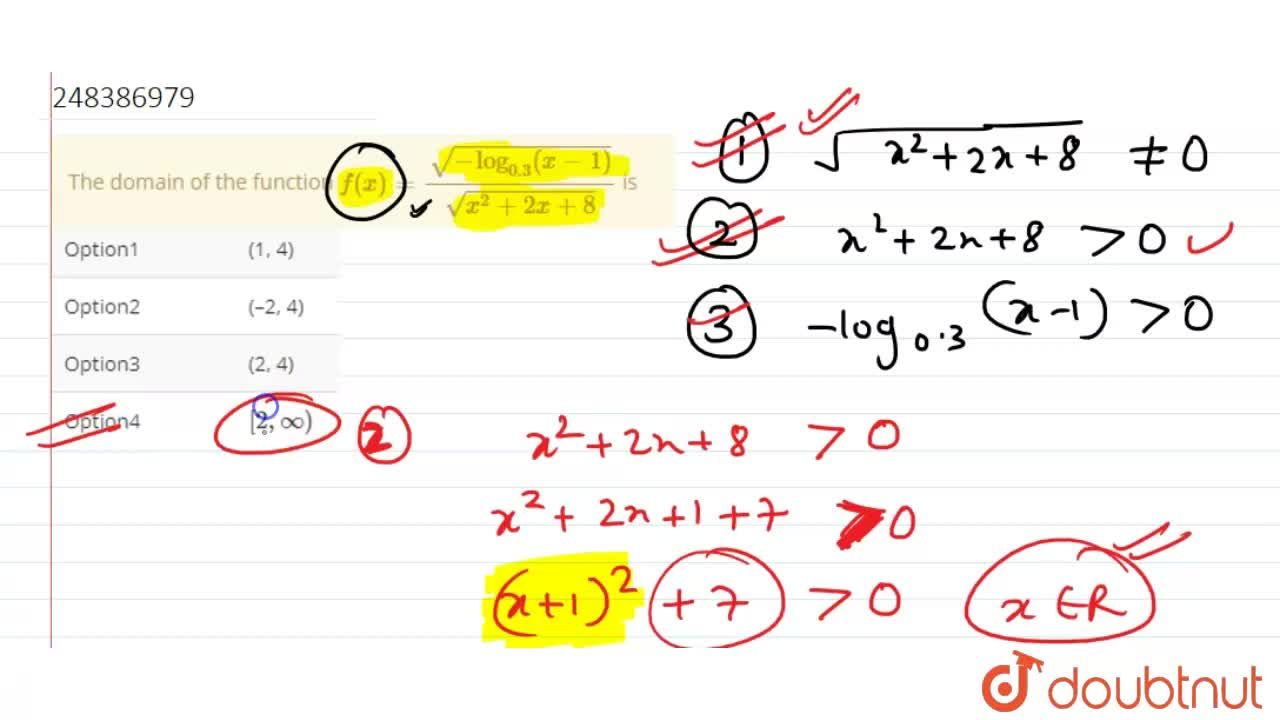 248386979
The domain of the function f(x) = √(-log₀.₃(x - 1)) / √(x² + 2x + 8) is
Option1 (1, 4)
Option2 (–2, 4)
Option3 (2, 4)
Option4 [2, ∞)
1 √(x² + 2x + 8) ≠ 0
2 x² + 2x + 8 > 0
3 -log₀.₃ (x - 1) > 0
2 x² + 2x + 8 > 0
x² + 2x + 1 + 7 > 0
(x + 1)² + 7 > 0 x ∈ R
doubtnut